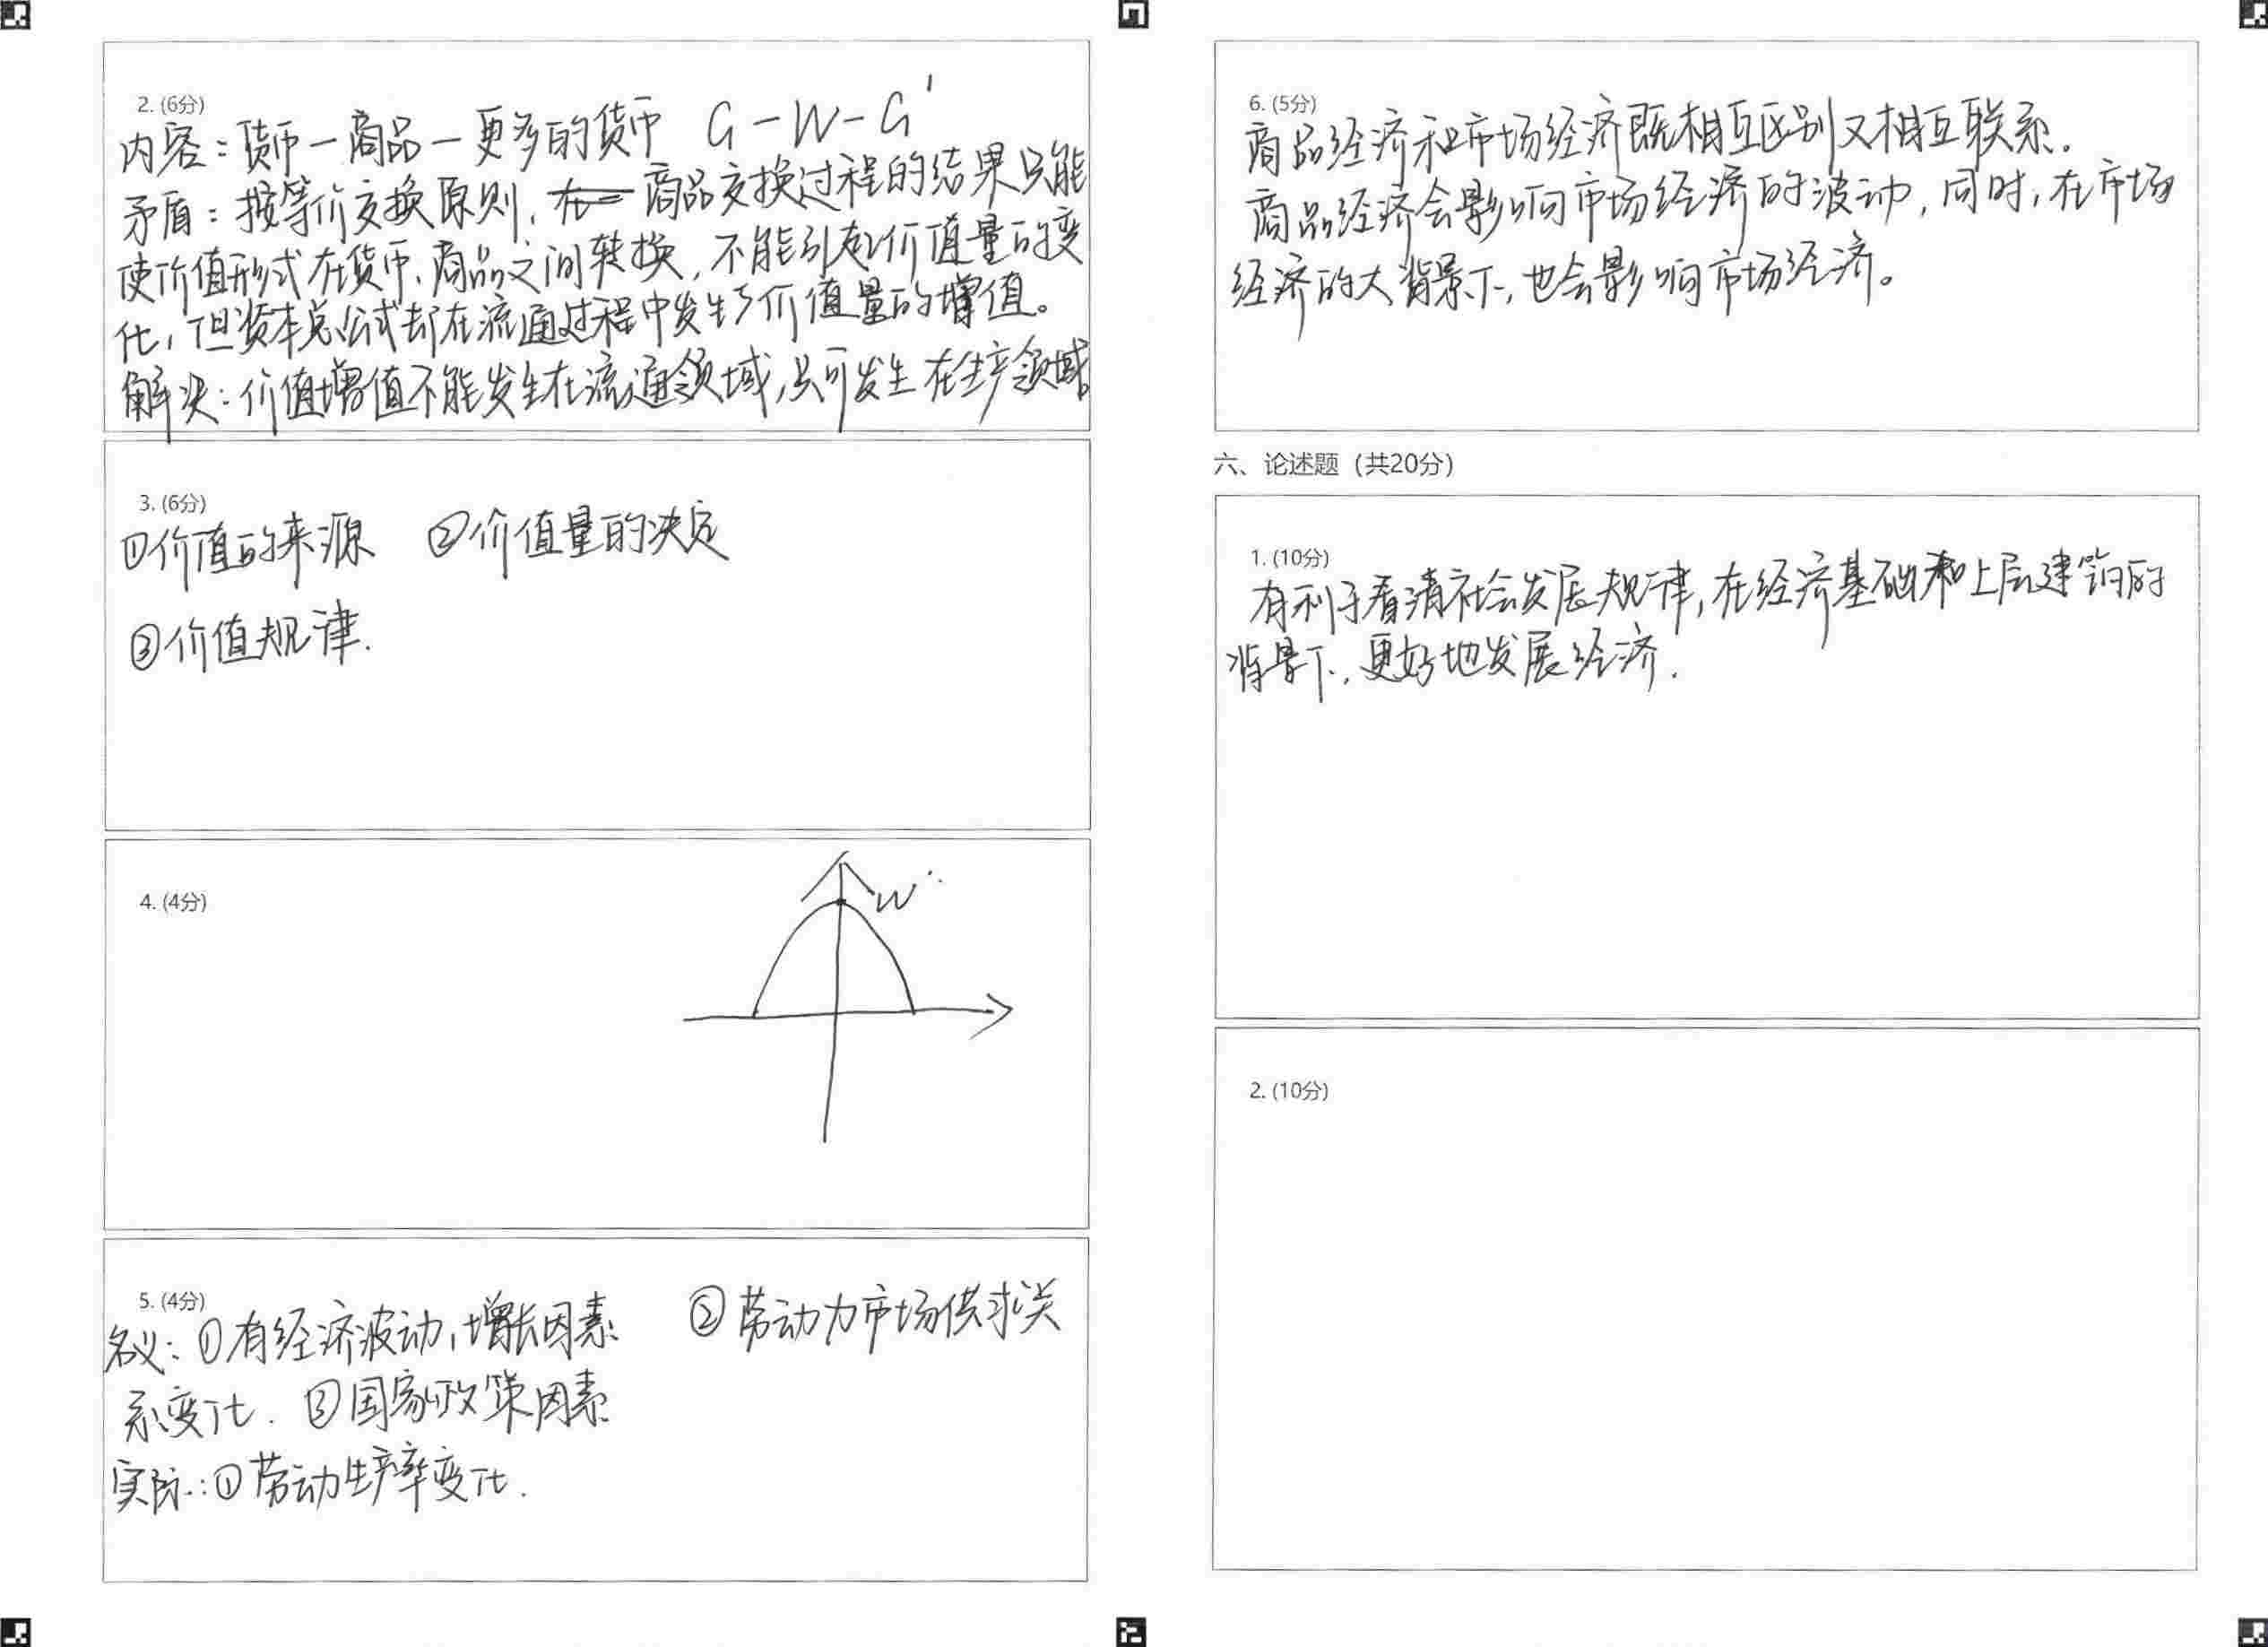 2. (6分)
内容：货币－商品－更多的货币 G－W－G'
矛盾：按等价交换原则，商品交换过程的结果只能
使价值形式在货币、商品之间转换，不能引起价值量的变
化，但资本总公式却在流通过程中发生了价值量的增值。
解决：价值增值不能发生在流通领域，只可发生在生产领域。
3. (6分)
①价值的来源 ②价值量的决定
③价值规律.
4. (4分)
W
5. (4分)
名义：①有经济波动，增长因素 ②劳动力市场供求关
系变化. ③国家政策因素
实际：①劳动生产率变化.
6. (5分)
商品经济和市场经济既相互区别又相互联系.
商品经济会影响市场经济的波动，同时，在市场
经济的大背景下，也会影响市场经济。
六、论述题（共20分）
1. (10分)
有利于看清社会发展规律，在经济基础和上层建筑的
背景下，更好地发展经济.
2. (10分)